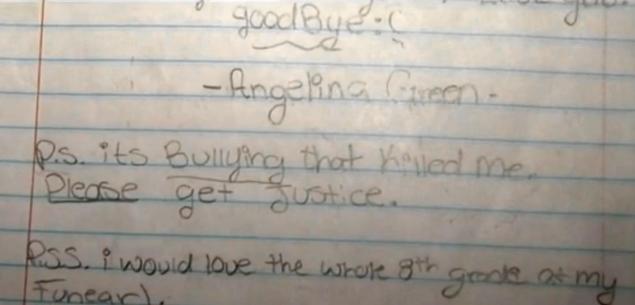 goodBye :(
- Angelina Green -
P.s. its Bullying that killed me.
Please get Justice.
P.SS. i would love the whole 8th grade at my
Funearl.